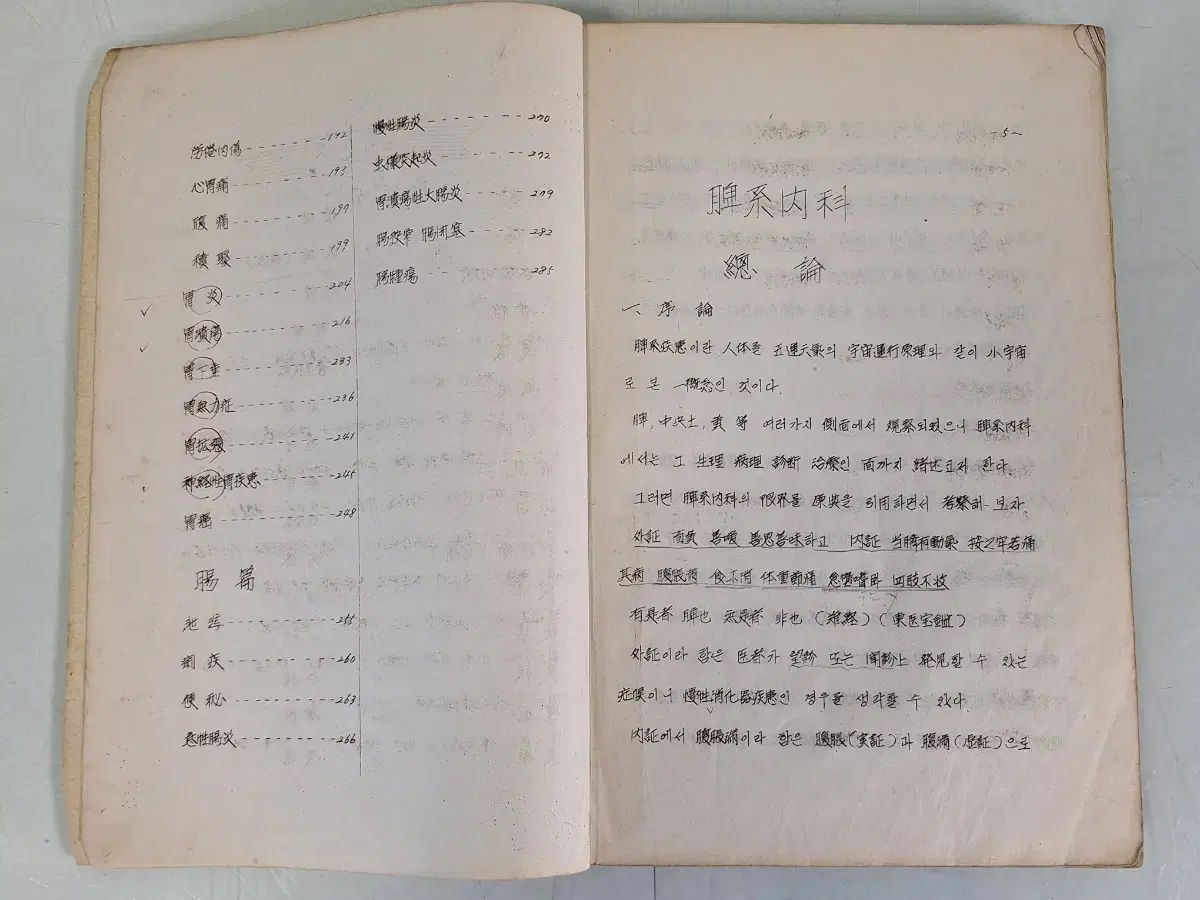 労倦内傷 192
心胃痛 193
腹痛 197
積聚 199
胃炎 204
胃潰瘍 216
胃下垂 233
胃無力症 236
胃拡張 241
神経性胃疾患 245
胃癌 248
腸篇
泄瀉 255
痢疾 260
便秘 263
急性腸炎 266
慢性腸炎 270
虫様突起炎 272
胃潰瘍性大腸炎 279
腸狭窄 腸閉塞 282
腸腫瘍 285
5~
脾系内科
總論
一、序論
脾系疾患이란 人体을 五運六氣의 宇宙運行原理와 같이 小宇宙
로 본 一概念인 것이다.
脾, 中央土, 黄 等 여러가지 側面에서 観察되었으니 脾系内科
에서는 그 生理 病理 診断 治療인 面까지 緖述코저 한다.
그러면 脾系内科의 限界를 原典을 引用하면서 考察해 보자
外証 面黄 善噫 善思善味하고 内証 当臍有動氣 按之牢若痛
其病 腹脹満 食不消 体重節痛 怠惰嗜臥 四肢不收
有是者 脾也 無是者 非也 (難経) (東医宝鑑)
外証이라 함은 医者가 望診 또는 聞診上 発見할 수 있는
症候이니 慢性消化器疾患인 경우을 생각할 수 있다.
内証에서 腹脹満이라 함은 腹脹(実証)과 腹満(虚証)으로